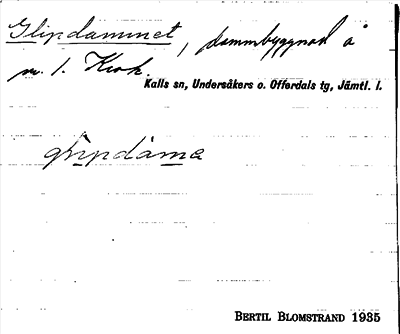 Glipdammet, dammbyggnad å
m. l. Krok.
Kalls sn, Undersåkers o. Offerdals tg, Jämtl. l.
glipdäma
BERTIL BLOMSTRAND 1935